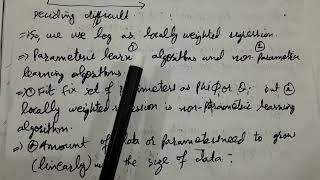 deciding difficult.
=> So, we use log as locally weighted regression
=> Parametric learn ① algorithms and non-parametric ②
learning algorithms.
=> ① Fit fix set of parameters as Phi φ or θ, but ②
locally weighted regression is non-Parametric learning
algorithm.
=> ② Amount of data or parameters need to grow
(linearly) the size of data -